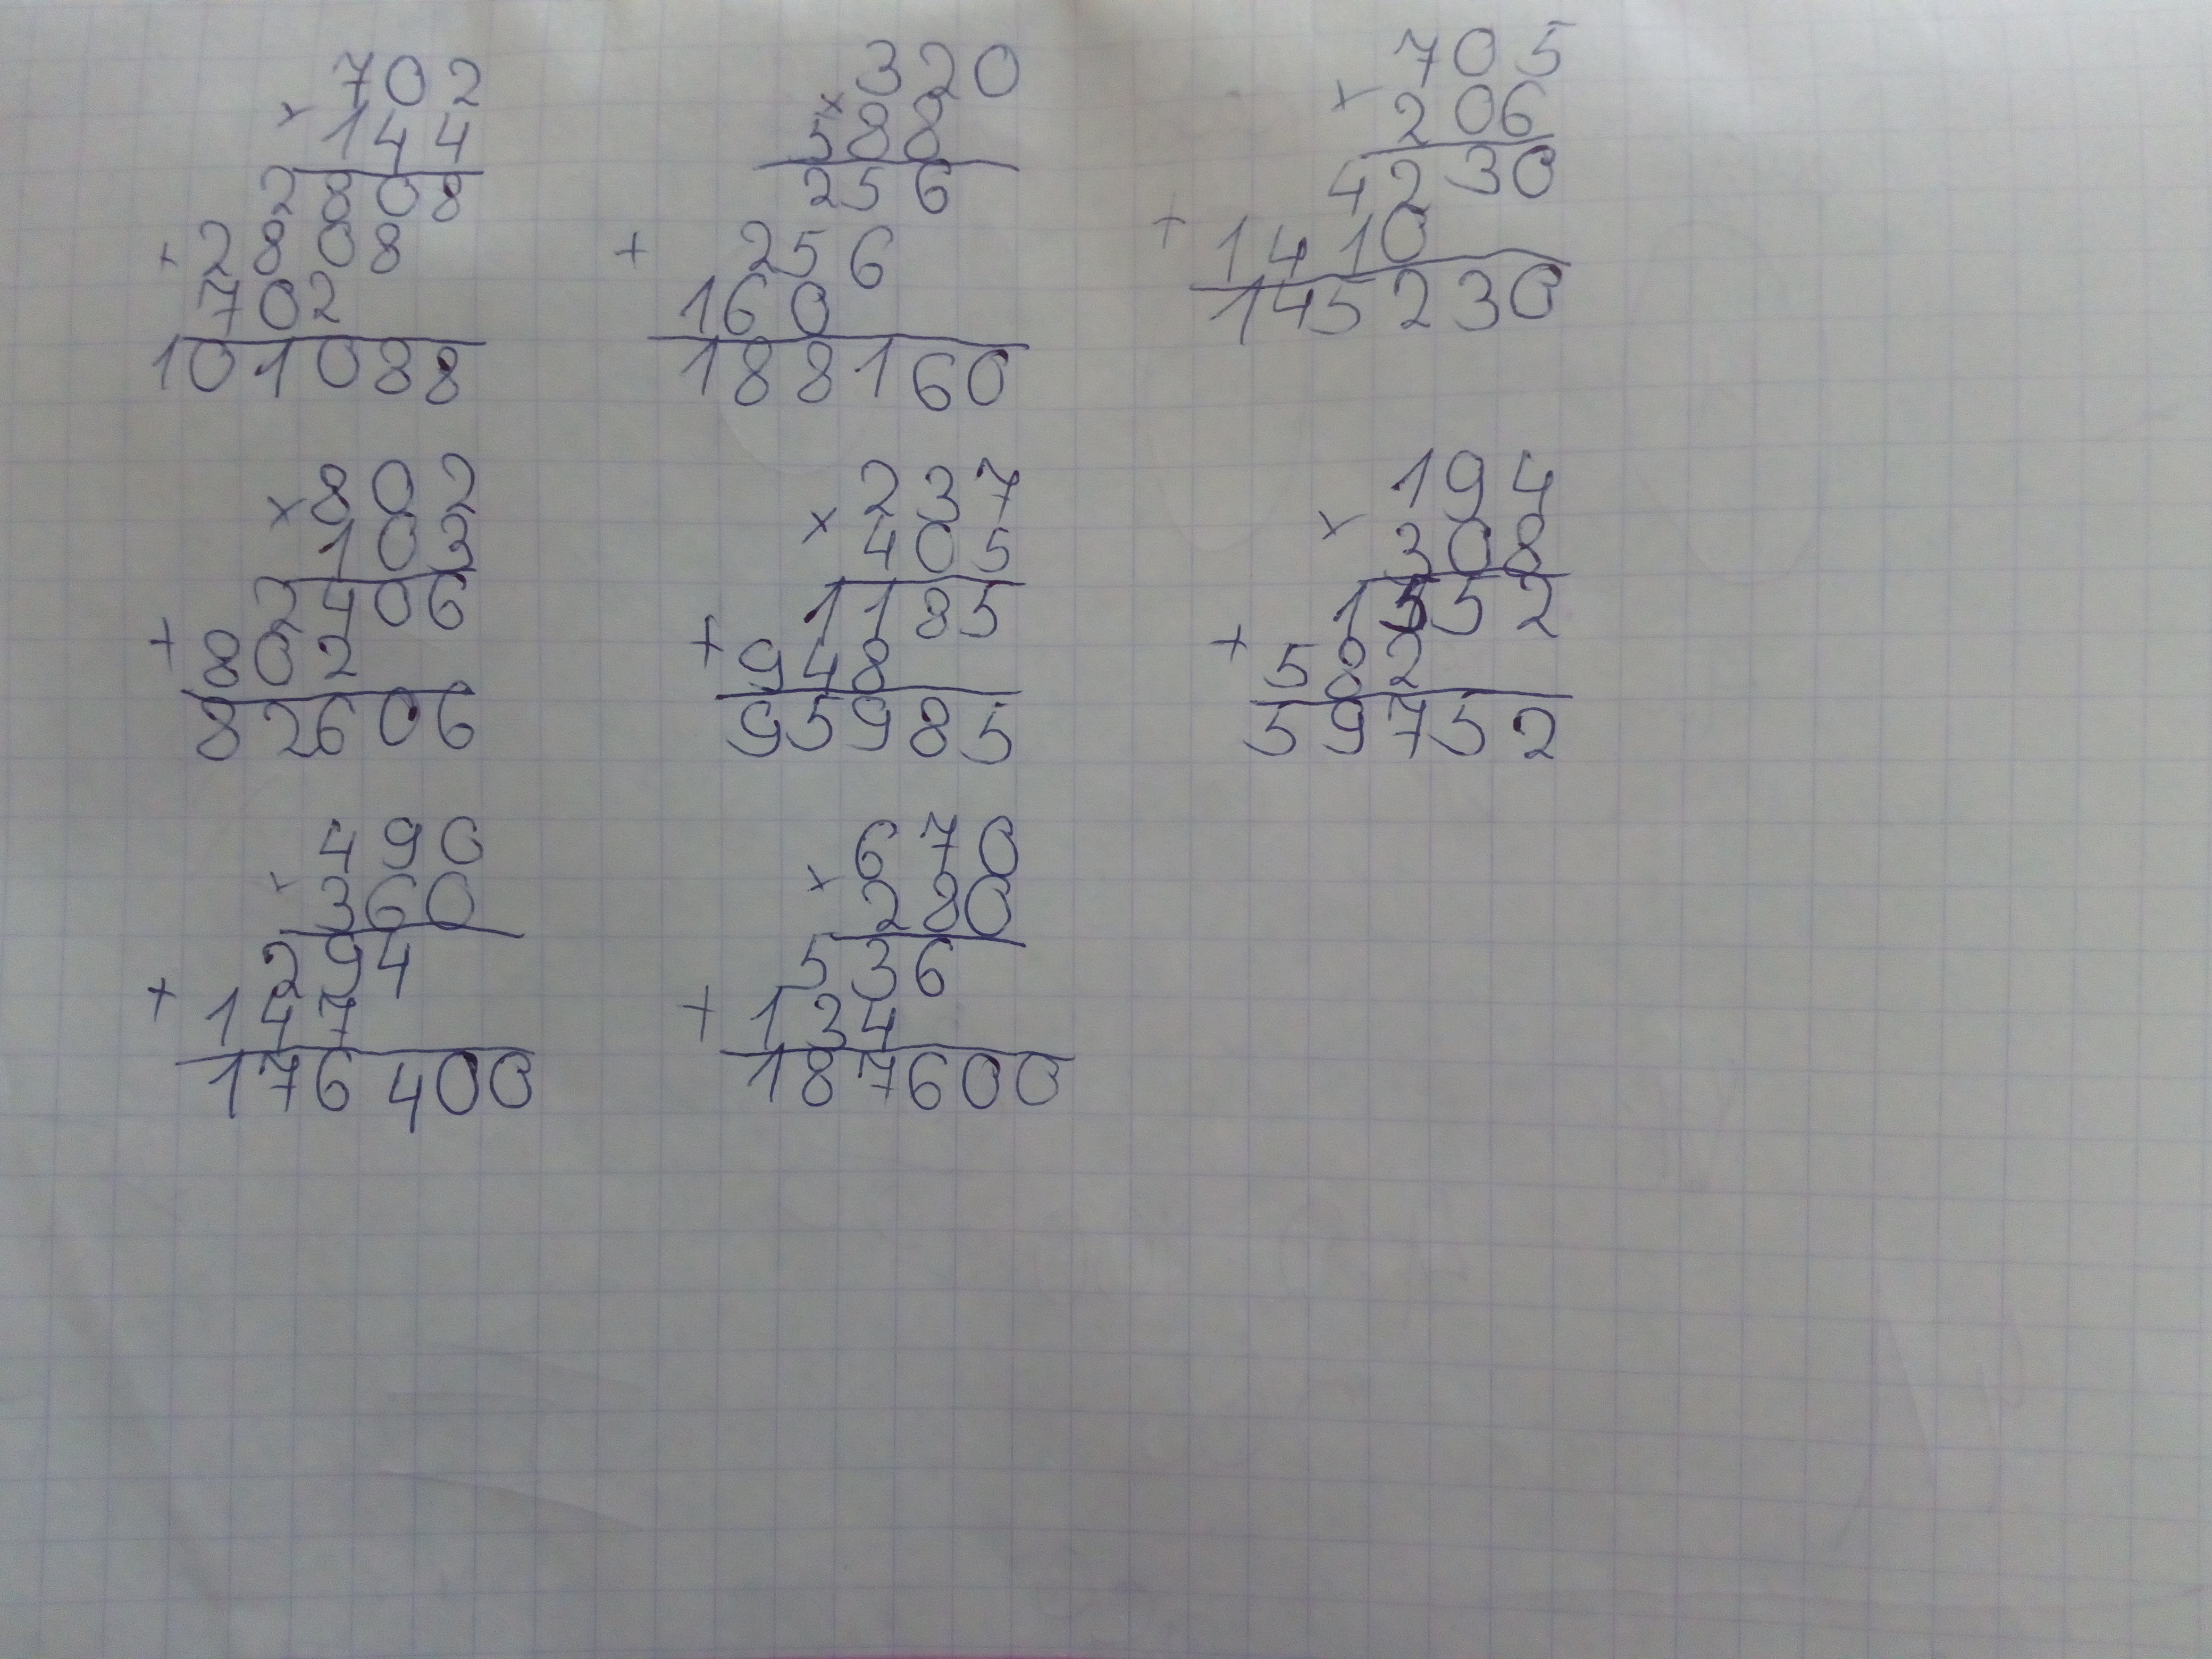 702
× 144
2808
+ 2808
702
101088
320
× 588
256
+ 256
160
188160
705
× 206
4230
+ 1410
145230
× 802
103
2406
+ 802
82606
237
× 405
1185
+ 948
95985
194
× 308
1552
+ 582
59752
490
× 360
294
+ 147
176400
670
× 280
536
+ 134
187600